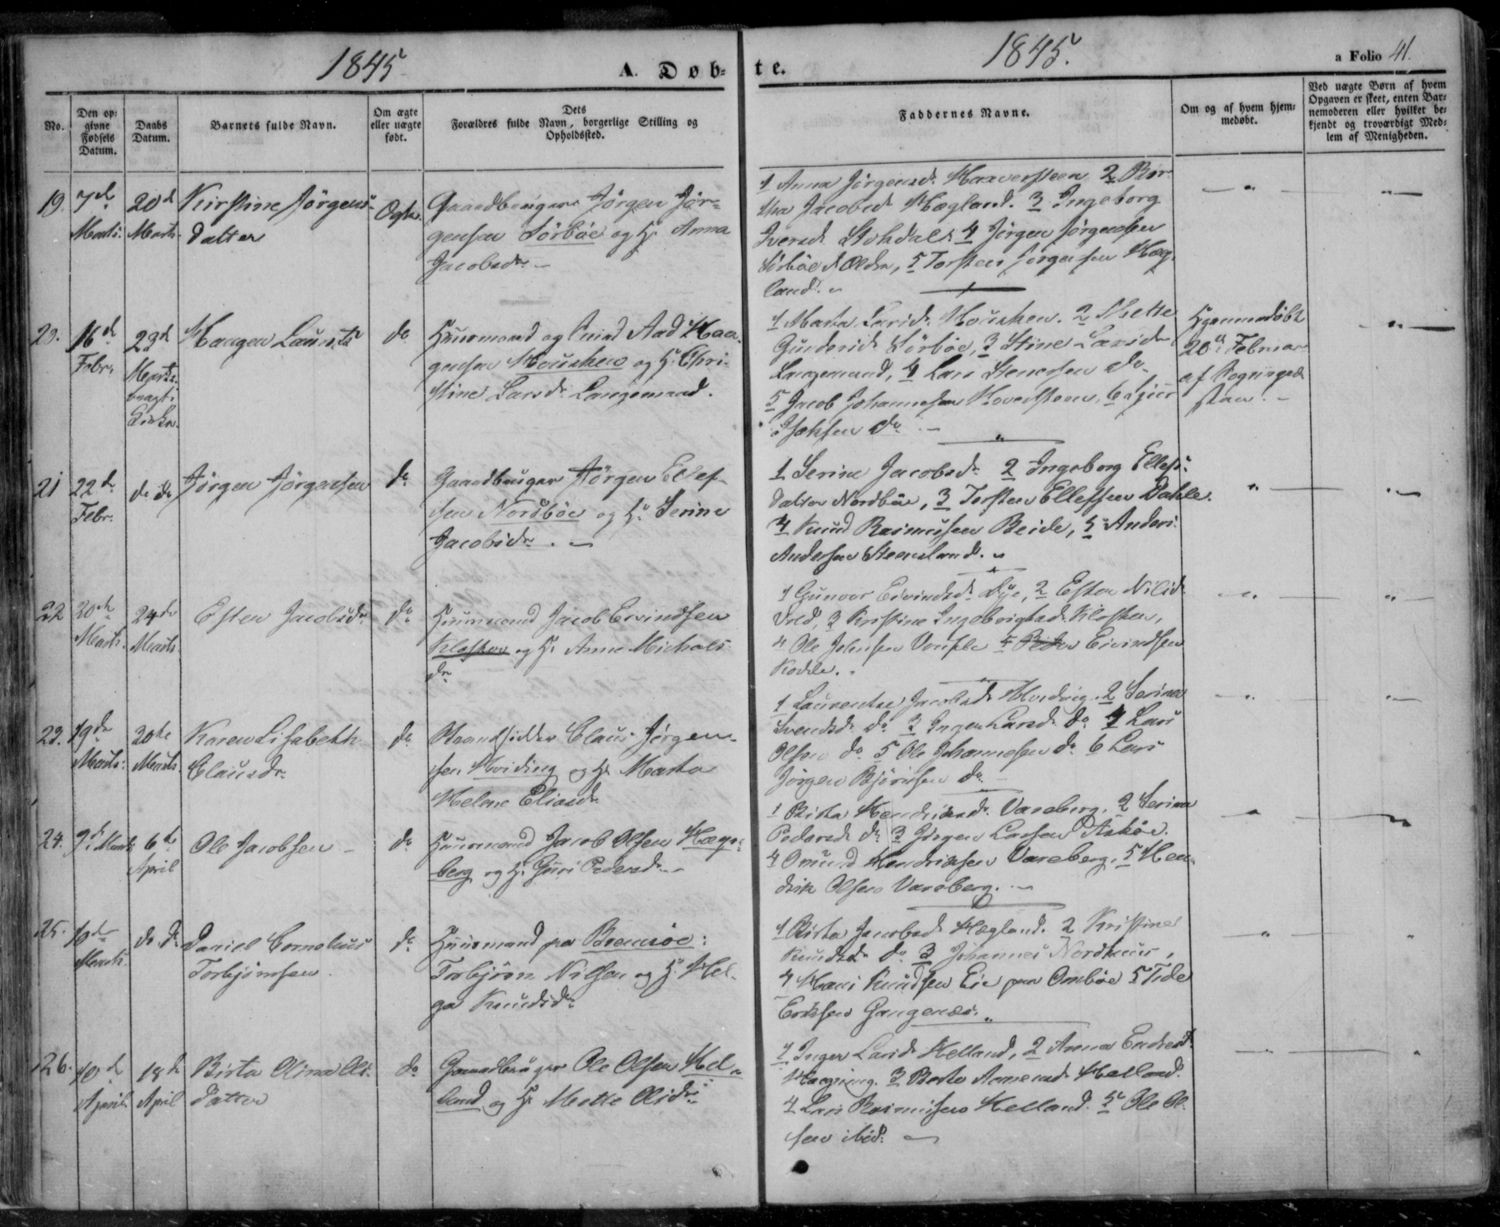 1845
A. Døb-
te.
1845.
a Folio 41.
No.
Den op-
givne
Fødsels
Datum.
Daabs
Datum.
Barnets fulde Navn.
Om ægte
eller uægte
født.
Dets
Forældres fulde Navn, borgerlige Stilling og
Opholdssted.
Faddernes Navne.
Om og af hvem hjem-
medøbt.
Ved uægte Børn af hvem
Opgaven er skeet, enten Bar-
nemoderen eller hvilket be-
kjendt og troværdigt Med-
lem af Menigheden.
19.
7de
Marts.
20de
Marts
Kirstine Jørgens
datter
Ægte
Gaardbruger Jørgen Jør-
gensen Sørbøe og H. Anna
Jacobsdr.
1 Anna Jørgensd. 2 Ber-
tha Jacobsd. Hægland. 3 Ingeborg
Iversd. Stohdal. 4 Jørgen Jørgensen
Sørbøe 5 Torsten Jørgensen Hæg-
land.
20.
16de
Febr.
23de
Marts
bragt i
Kirke
Haagen Lauritz
do
Huusmand og Smed Aad Haa-
gensen Housken og H. Chri-
stine Larsdr. Langemand.
1 Marta Larsd. Housken. 2 Mette
Gundersd. Sørbøe, 3 Stine Larsdr.
Langemand, 4 Lars Stenersen do
5 Jacob Johannesen 6
do
Hjemmedøbt
20de Februar
af Sognepræ-
sten.
21
22de
Febr.
do do
Jørgen Jørgensen
do
Gaardbruger Jørgen Ellef-
sen Nordbøe og H. Serine
Jacobsdr.
1 Serine Jacobsdr. 2 Ingeborg Ellefs-
datter Nordbøe, 3 Torsten Ellefsen Dahle.
4 Knud Rasmusen Reide, 5 Anders
Andersen Steensland.
22
20de
Marts.
24de
Marts
Esten Jacobsdr.
do
Huusmand Jacob Eivindsen
Kloster og H. Anne Michels
dr.
1 Gunvor Eivindsd. Rye, 2 Ester Nilsd.
3 Kirstine Ingebrigtsd. Kloster,
4 Ole Johnsen 5 Peder Eivindsen
23.
19de
Marts.
20de
Marts
Karen Lisabeth
Clausdr.
do
Strandsidder Claus Jørgen-
sen Hviding og H. Marta
Helene Eliasdr.
1 Laurentse Jacobsd. Hviding. 2 Serine
Svendsd. do 3 Inger Larsd. do 4 Lars
Olsen do 5 Ole Johannesen do 6 Lars
Jørgen Bjørnsen do
24.
9de Marts
6te
April
Ole Jacobsen
do
Huusmand Jacob Olsen Hægs-
berg og H. Guri Pedersdr.
1 Berta Hendriksd. Vareberg. 2 Serina
Pedersd. do 3 Jørgen Larsen Askøe.
4 Omund Hendriksen Vareberg. 5 Hen-
drik Olsen Vareberg.
25.
10de
Marts
do do
Daniel Cornelius
Torbjørnsen
do
Huusmand paa Bremsøe:
Torbjørn Nilsen og H. Hel-
ga Knudsdr.
1 Berta Jacobsd. Hægland. 2 Kristine
Knudsd. do 3 Johannes Nordhuus,
4 Hans Knudsen Eie paa Ombøe 5 Tide
Eriksen Gangenæs.
26.
10de
April
18de
April
Birta Olina Ols-
datter
do
Gaardbruger Ole Olsen Hel-
land og H. Mette Olsdr.
1 Inger Larsd. Helland, 2 Anna Endresd.
3 Berta Aanensd. Helland.
4 Lars Rasmusen Helland. 5 Ole Ol-
sen ibid.